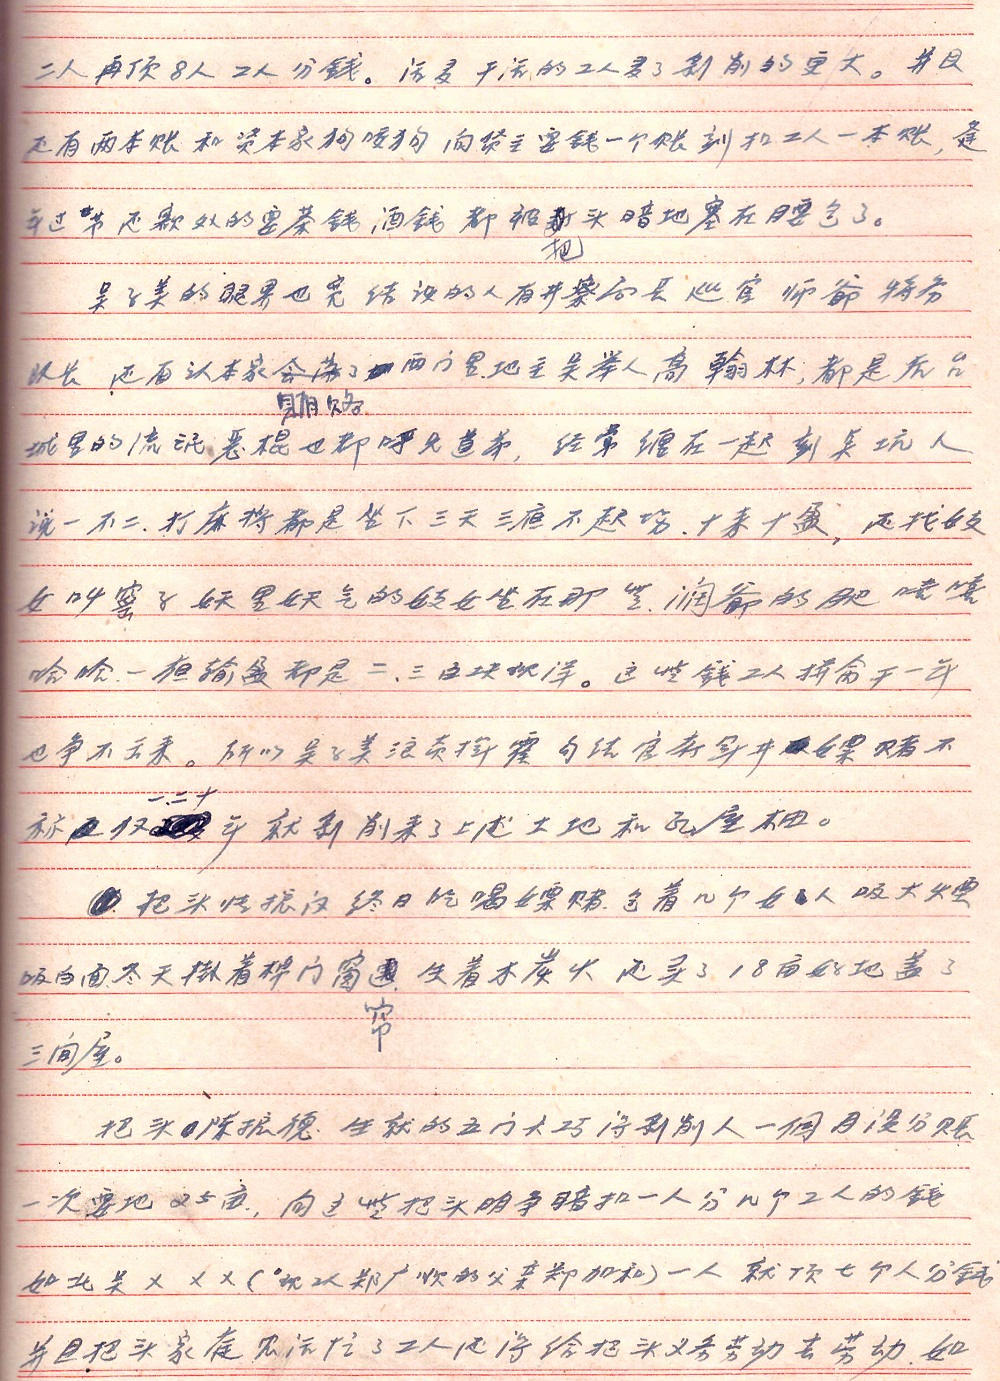 二人再顶8人工人分钱。活是干活的工人受了剥削的更大。并且
还有两本账和资本家狗咬狗向货主要钱一个账到扣工人一本账，逢
年过节还额外的要茶钱酒钱都被把头暗地塞在腰包了。
吴子美的眼界也宽结识的人有井察局长巡官师爷特务
队长还有认本家贿赂了西门里地主吴举人高翰林，都是后台
城里的流氓恶棍也都呼兄道弟，经常缠在一起刻吴坑人
说一不二．打麻将都是坐下三天三夜不起场．十来十盈，还找妓
女叫窑子妖里妖气的妓女坐在那些阔爷的腿嘻嘻
哈哈一但输盈都是二．三百块现洋。这些钱工人拼命干一年
也争不云来。所以吴子美浪荡挥霍勾结官府 嫖赌不
称 仅一二十年就剥削来了上述土地和瓦屋楼。
把头 振汉终日吃喝嫖赌．包着几个女人吸大烟
吸白面．冬天掛着棉门窗帘．生着木炭火还买了18亩好地盖了
三间屋。
把头陈振德．生就的五门大巧净剥削人一個月没分账
一次要地25亩．，向这些把头明争暗扣一人分几个工人的钱
如北吴×××（现工人郑广顺的父亲郑加和）一人就顶七个人分钱
并且把头家庭农活忙了工人还得给把头义务劳动去劳动．如